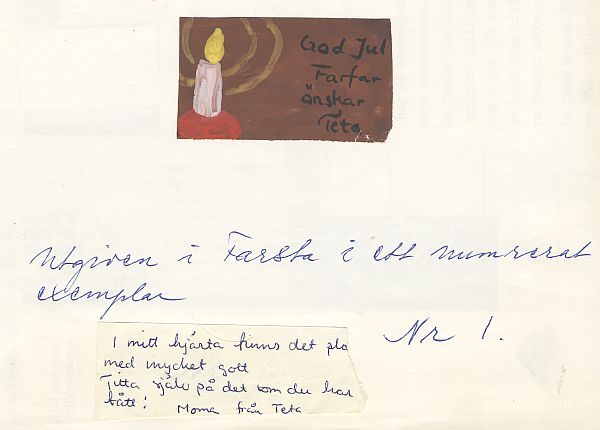 God Jul
Farfar
önskar
Teta
Utgiven i Farsta i ett numrerat
exemplar
Nr 1.
I mitt hjärta finns det pla
med mycket gott
Titta själv på det som du har
fått! Moma från Teta